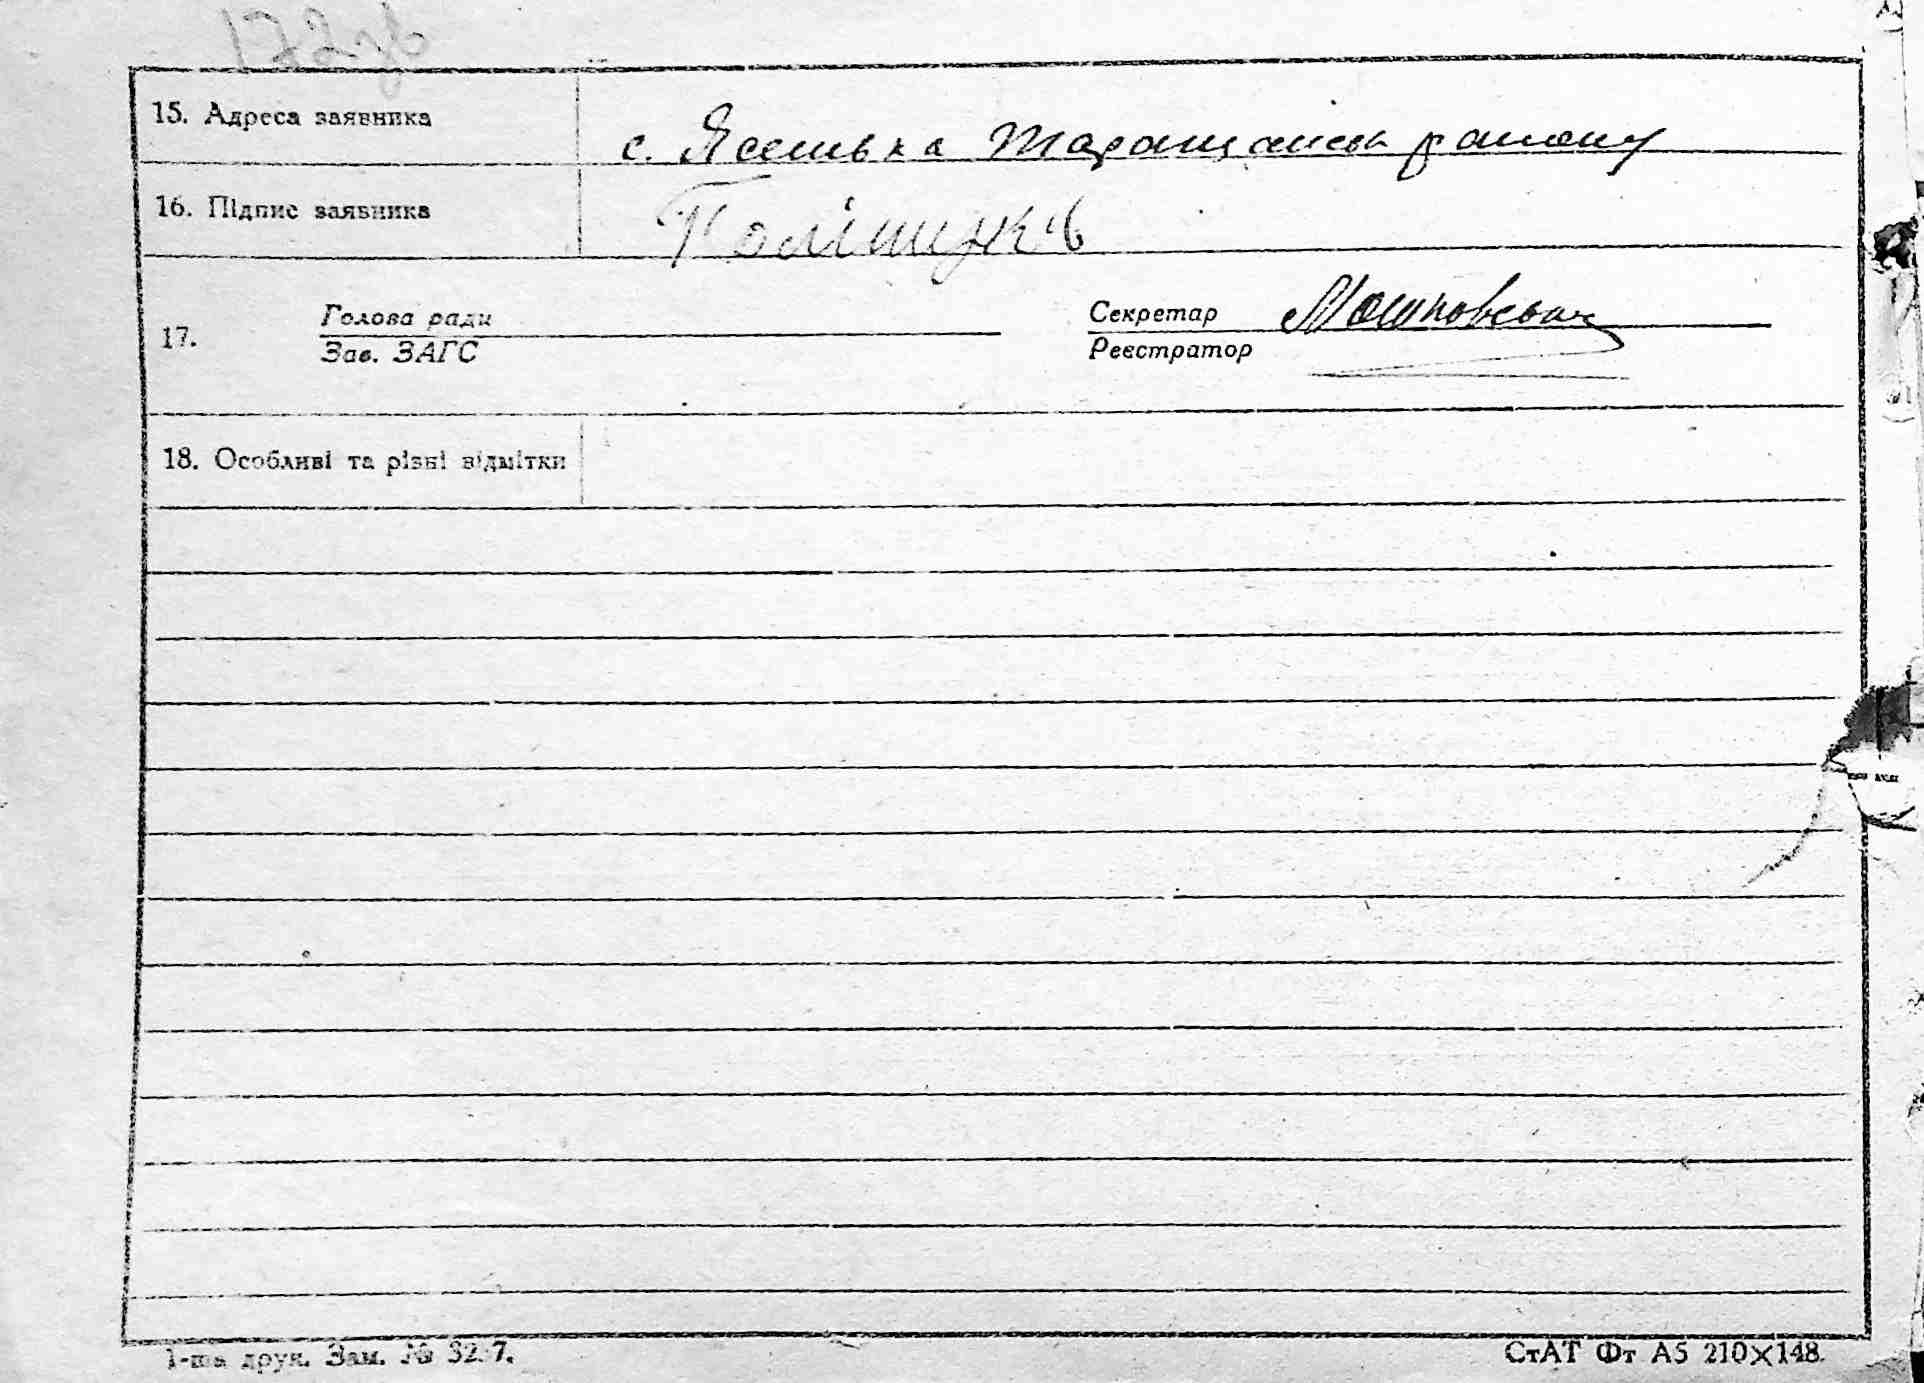 172 зв
15. Адреса заявника
с. Ясенівка Таращанськ району
16. Підпис заявника
Поліщук
17.
Голова ради
Зав. ЗАГС
Секретар
Реєстратор
18. Особливі та різні відмітки
1-ша друк. Зам. №
СтАТ Фт А5 210×148.